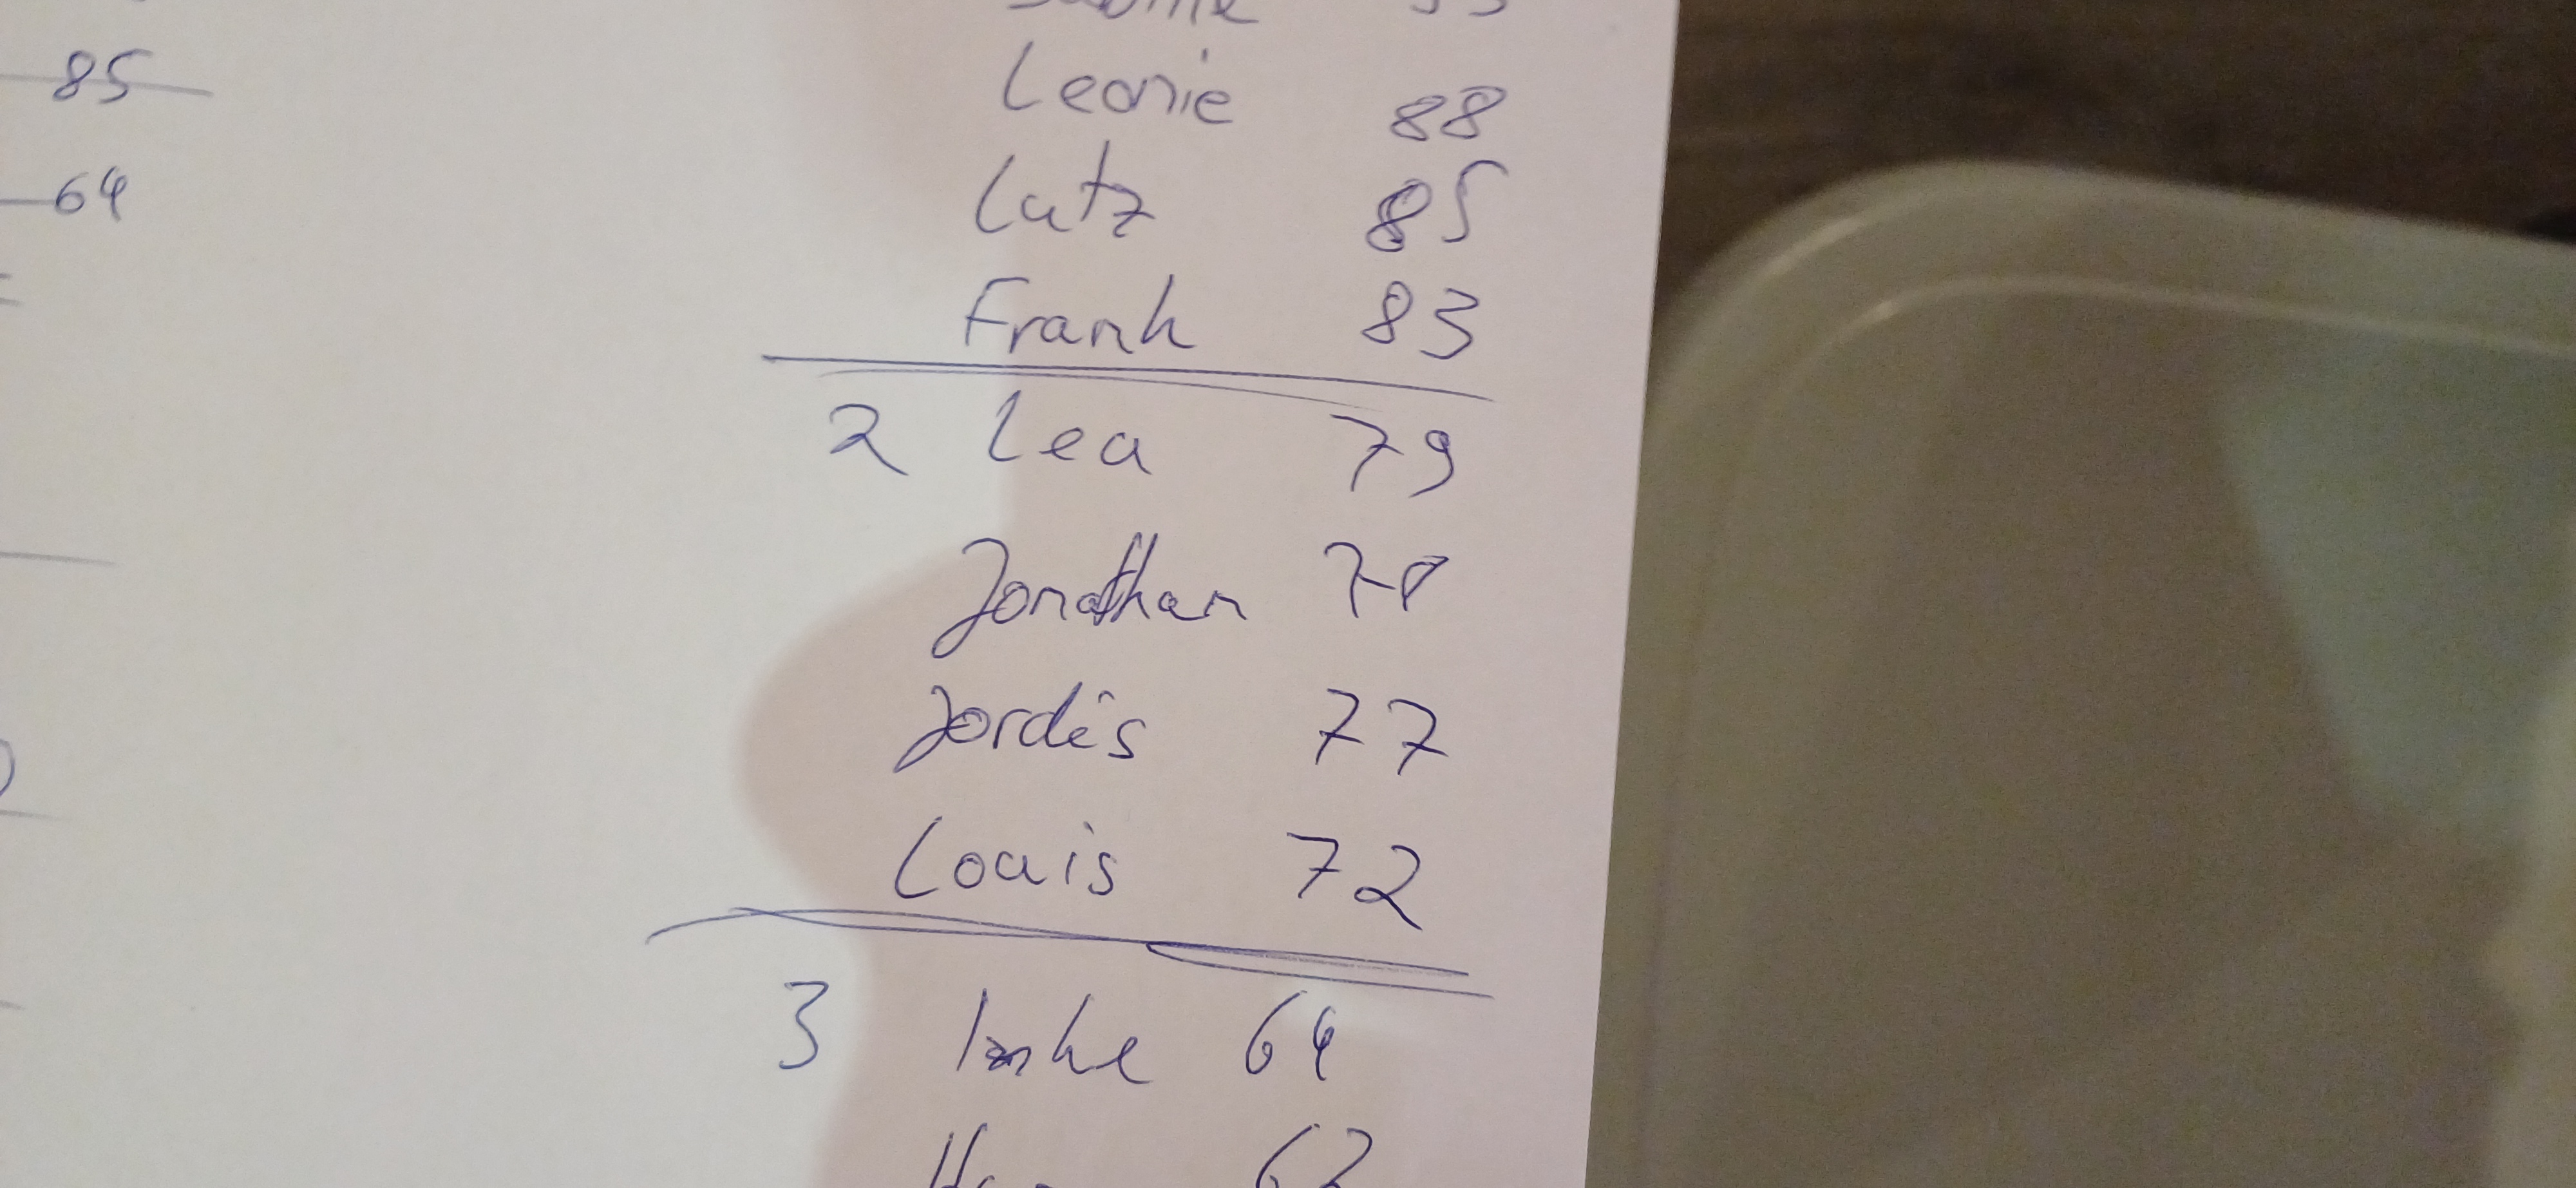 85
64
Leonie 88
Lutz 85
Frank 83
2 Lea 79
Jonathan 78
Jordis 77
Louis 72
3 Imke 64
62